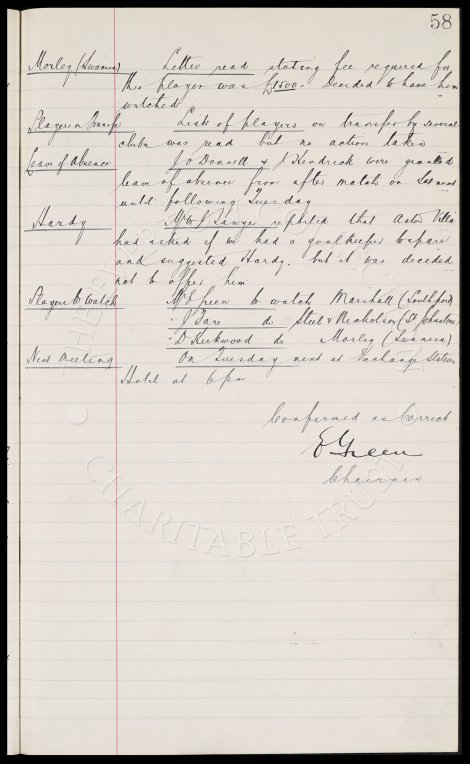 58
Morley (Swansea) Letter read stating fee required for
this player was £1500. Decided to have him
watched
Players on Transfer Lists of players on transfer by several
clubs was read but no action taken
Leave of Absence J O Donnell & J Kendrick were granted
leave of absence from after match on Sat next
until following Tuesday
Hardy Mr W J Sawyer reported that Aston Villa
had asked if we had a goalkeeper to spare
and suggested Hardy. but it was decided
not to offer him
Players to Watch Mr E Green to watch Marshall (Southport)
" J Fare do Steel & Nicholson (St Johnstone)
" D Kirkwood do Morley (Swansea)
Next Meeting On Tuesday next at Exchange Station
Hotel at 6 pm
Confirmed as Correct
E Green
Chairman
CHARITABLE TRUST